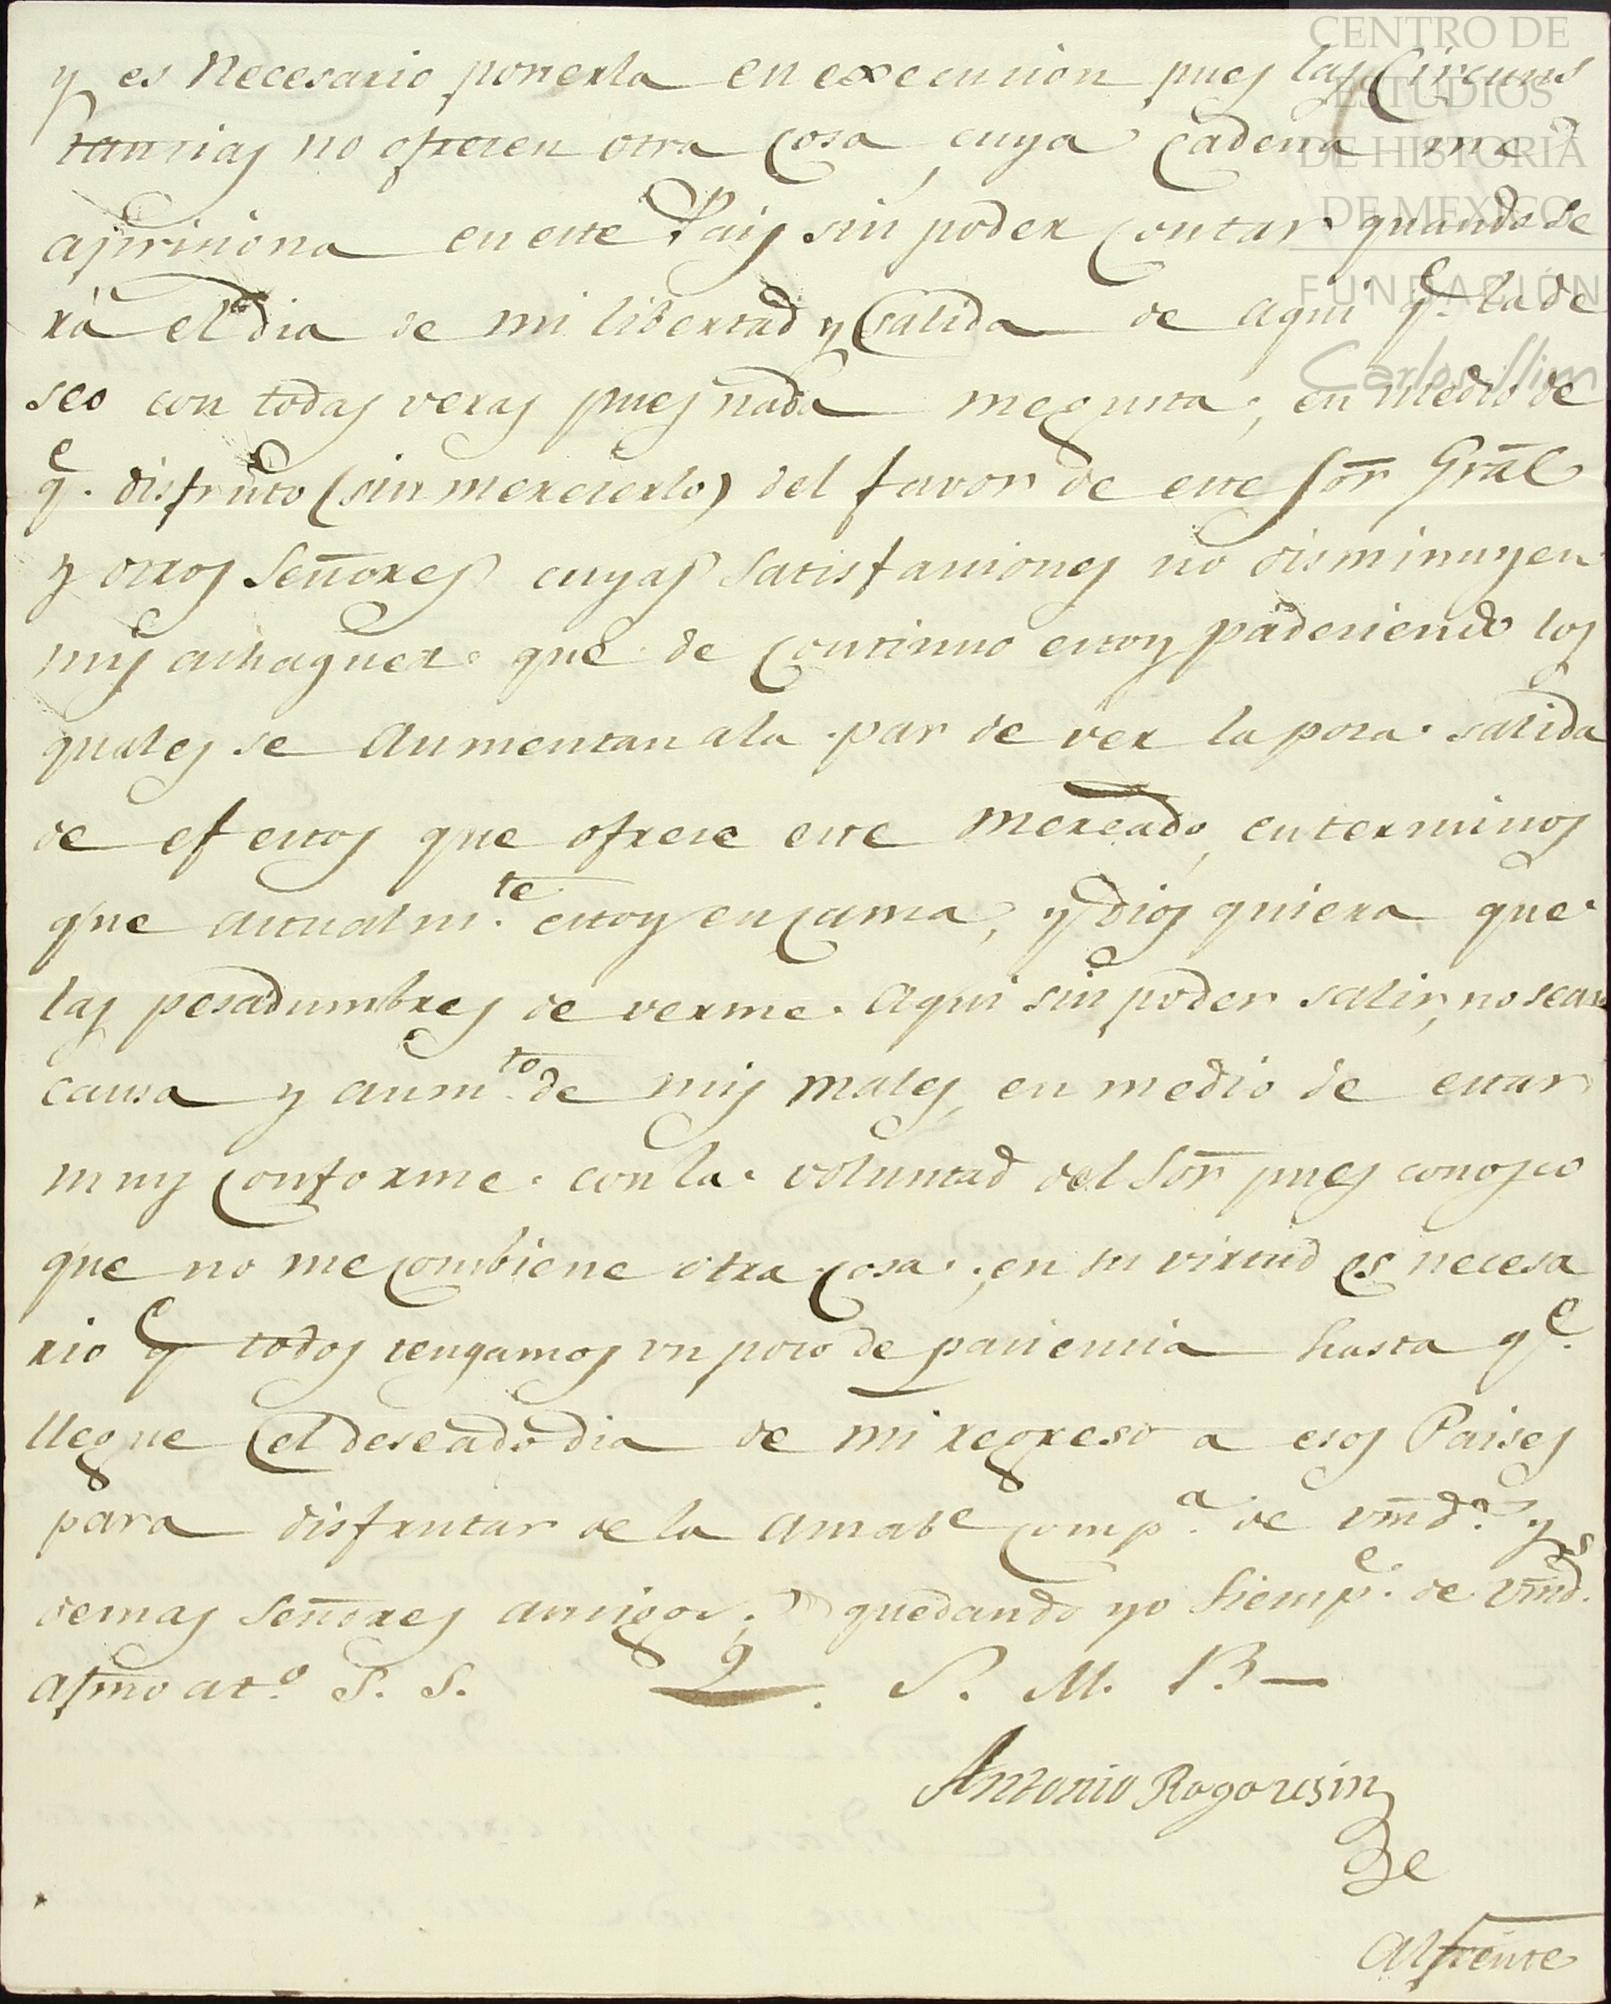 CENTRO DE
ESTUDIOS
DE HISTORIA
DE MEXICO
FUNDACIÓN
Carlos Slim
y es necesario ponerla en execucion pues las Circuns
tancias no ofrecen otra cosa, cuya cadena me
aprisiona en este Pais sin poder contar quando se
rà el dia de mi libertad y salida de aqui q.e la de
seo con todas veras pues nada me gusta; en medio de
q.e disfruto (sin merecerlo) del favor de este Sōr Grāl
y otros Señores cuyas satisfacciones no disminuyen
mis achaques que de continuo estoy padeciendo los
quales se aumentan ala par de ver la poca salida
de efectos que ofrece este mercado, en terminos
que actualm.te estoy en cama, y dios quiera que
las pesadumbres de verme aqui sin poder salir, no sean
causa y aum.to de mis males, en medio de estar
muy conforme con la voluntad del Sōr pues conosco
que no me combiene otra cosa; en su virtud es necesa
rio q.e todos tengamos un poco de paciencia hasta q.e
llegue el deseado dia de mi regreso a esos Paises
para disfrutar de la amabe comp.a de Vmd.s y
demas Señores amigos; quedando yo siemp.e de Vmd.s
afmo at.o S. S. Q. S. M. B.
Antonio
Al frente